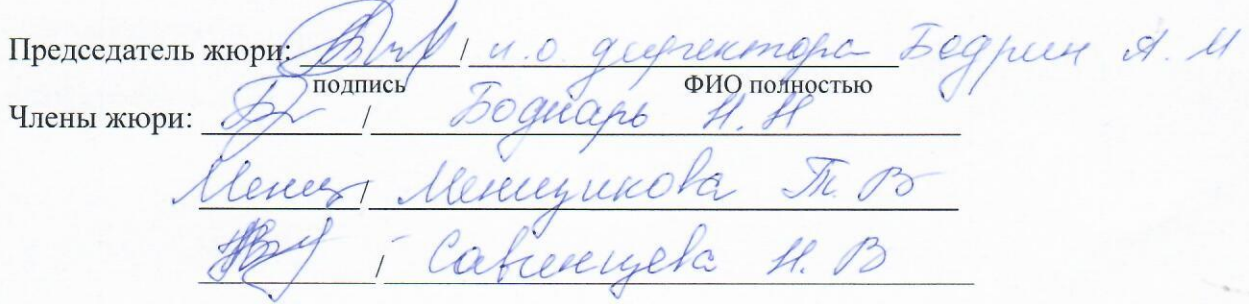 Председатель жюри: / и.о. директора Бодрин А. М
подпись ФИО полностью
Члены жюри: / Боднарь Н. Н
Менщ / Менщикова Т. В
/ Савинцева Н. В